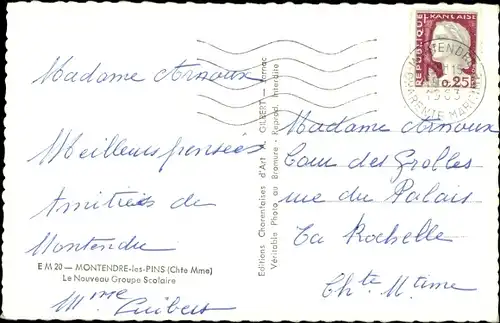 Madame Arnoux
Meilleurs pensées
Amitiées de
Montendre
E M 20 — MONTENDRE-les-PINS (Chte Mme)
Le Nouveau Groupe Scolaire
Mme Guibert
Editions Charentaises d'Art A. GILBERT - Jarnac
Véritable Photo au Bromure - Reprod. Interdite
REPUBLIQUE FRANÇAISE
0,25
MONTENDRE
1963
CHARENTE MARITIME
Madame Arnoux
Cour des Grolles
rue du Palais
La Rochelle
Chte Mtime